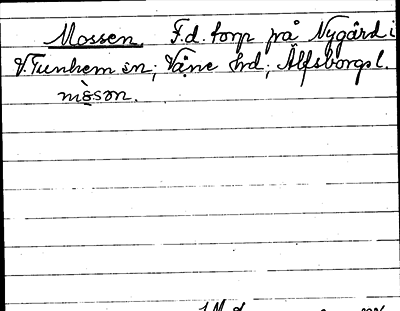 Mossen. F.d. torp på Nygård i
V. Tunhem sn; Väne hrd; Älfsborgs l.
mò̤sən.